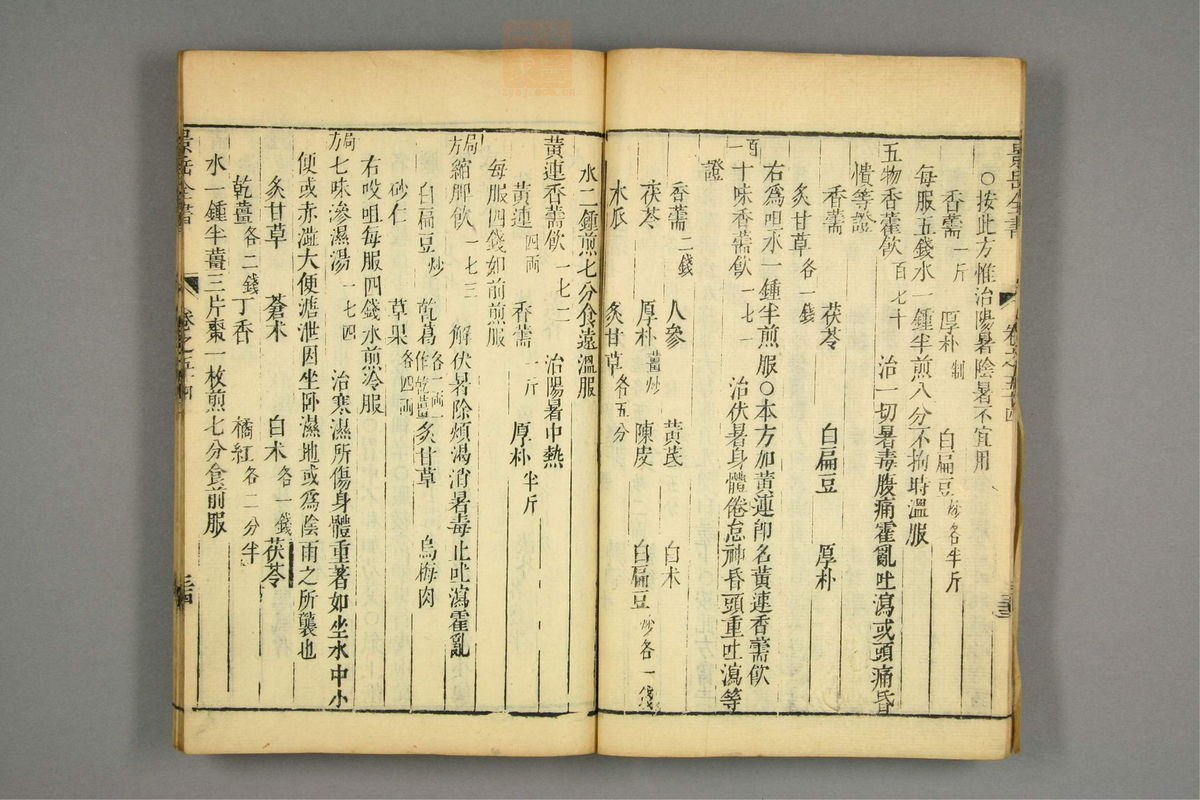 景岳全書
○按此方惟治陽暑陰暑不宜用
香薷一斤 厚朴制 白扁豆炒各半斤
每服五錢水一鍾半煎八分不拘時溫服
五物香薷飲百七十 治一切暑毒腹痛霍亂吐瀉或頭痛昏
憒等證
香薷 茯苓 白扁豆 厚朴
炙甘草各一錢
右爲咀水一鍾半煎服○本方加黃連卽名黃連香薷飲
十味香薷飲百一七一 治伏暑身體倦怠神昏頭重吐瀉等
證
香薷二錢 人參 黃芪 白术
茯苓 厚朴薑炒 陳皮 白扁豆炒各一錢
木瓜 炙甘草各五分
水二鍾煎七分食遠溫服
黃連香薷飲一七二 治陽暑中熱
黃連四兩 香薷一斤 厚朴半斤
每服四錢如前煎服
局方縮脾飲一七三 解伏暑除煩渴消暑毒止吐瀉霍亂
白扁豆炒 乾葛各二兩一作乾薑 炙甘草 烏梅肉
砂仁 草果各四兩
右㕮咀每服四錢水煎冷服
局方七味滲濕湯一七四 治寒濕所傷身體重著如坐水中小
便或赤澁大便溏泄因坐卧濕地或爲陰雨之所襲也
炙甘草 蒼术 白术各一錢 茯苓
乾薑各二錢 丁香 橘紅各二分半
水一鍾半薑三片棗一枚煎七分食前服
景岳全書 卷之五十四